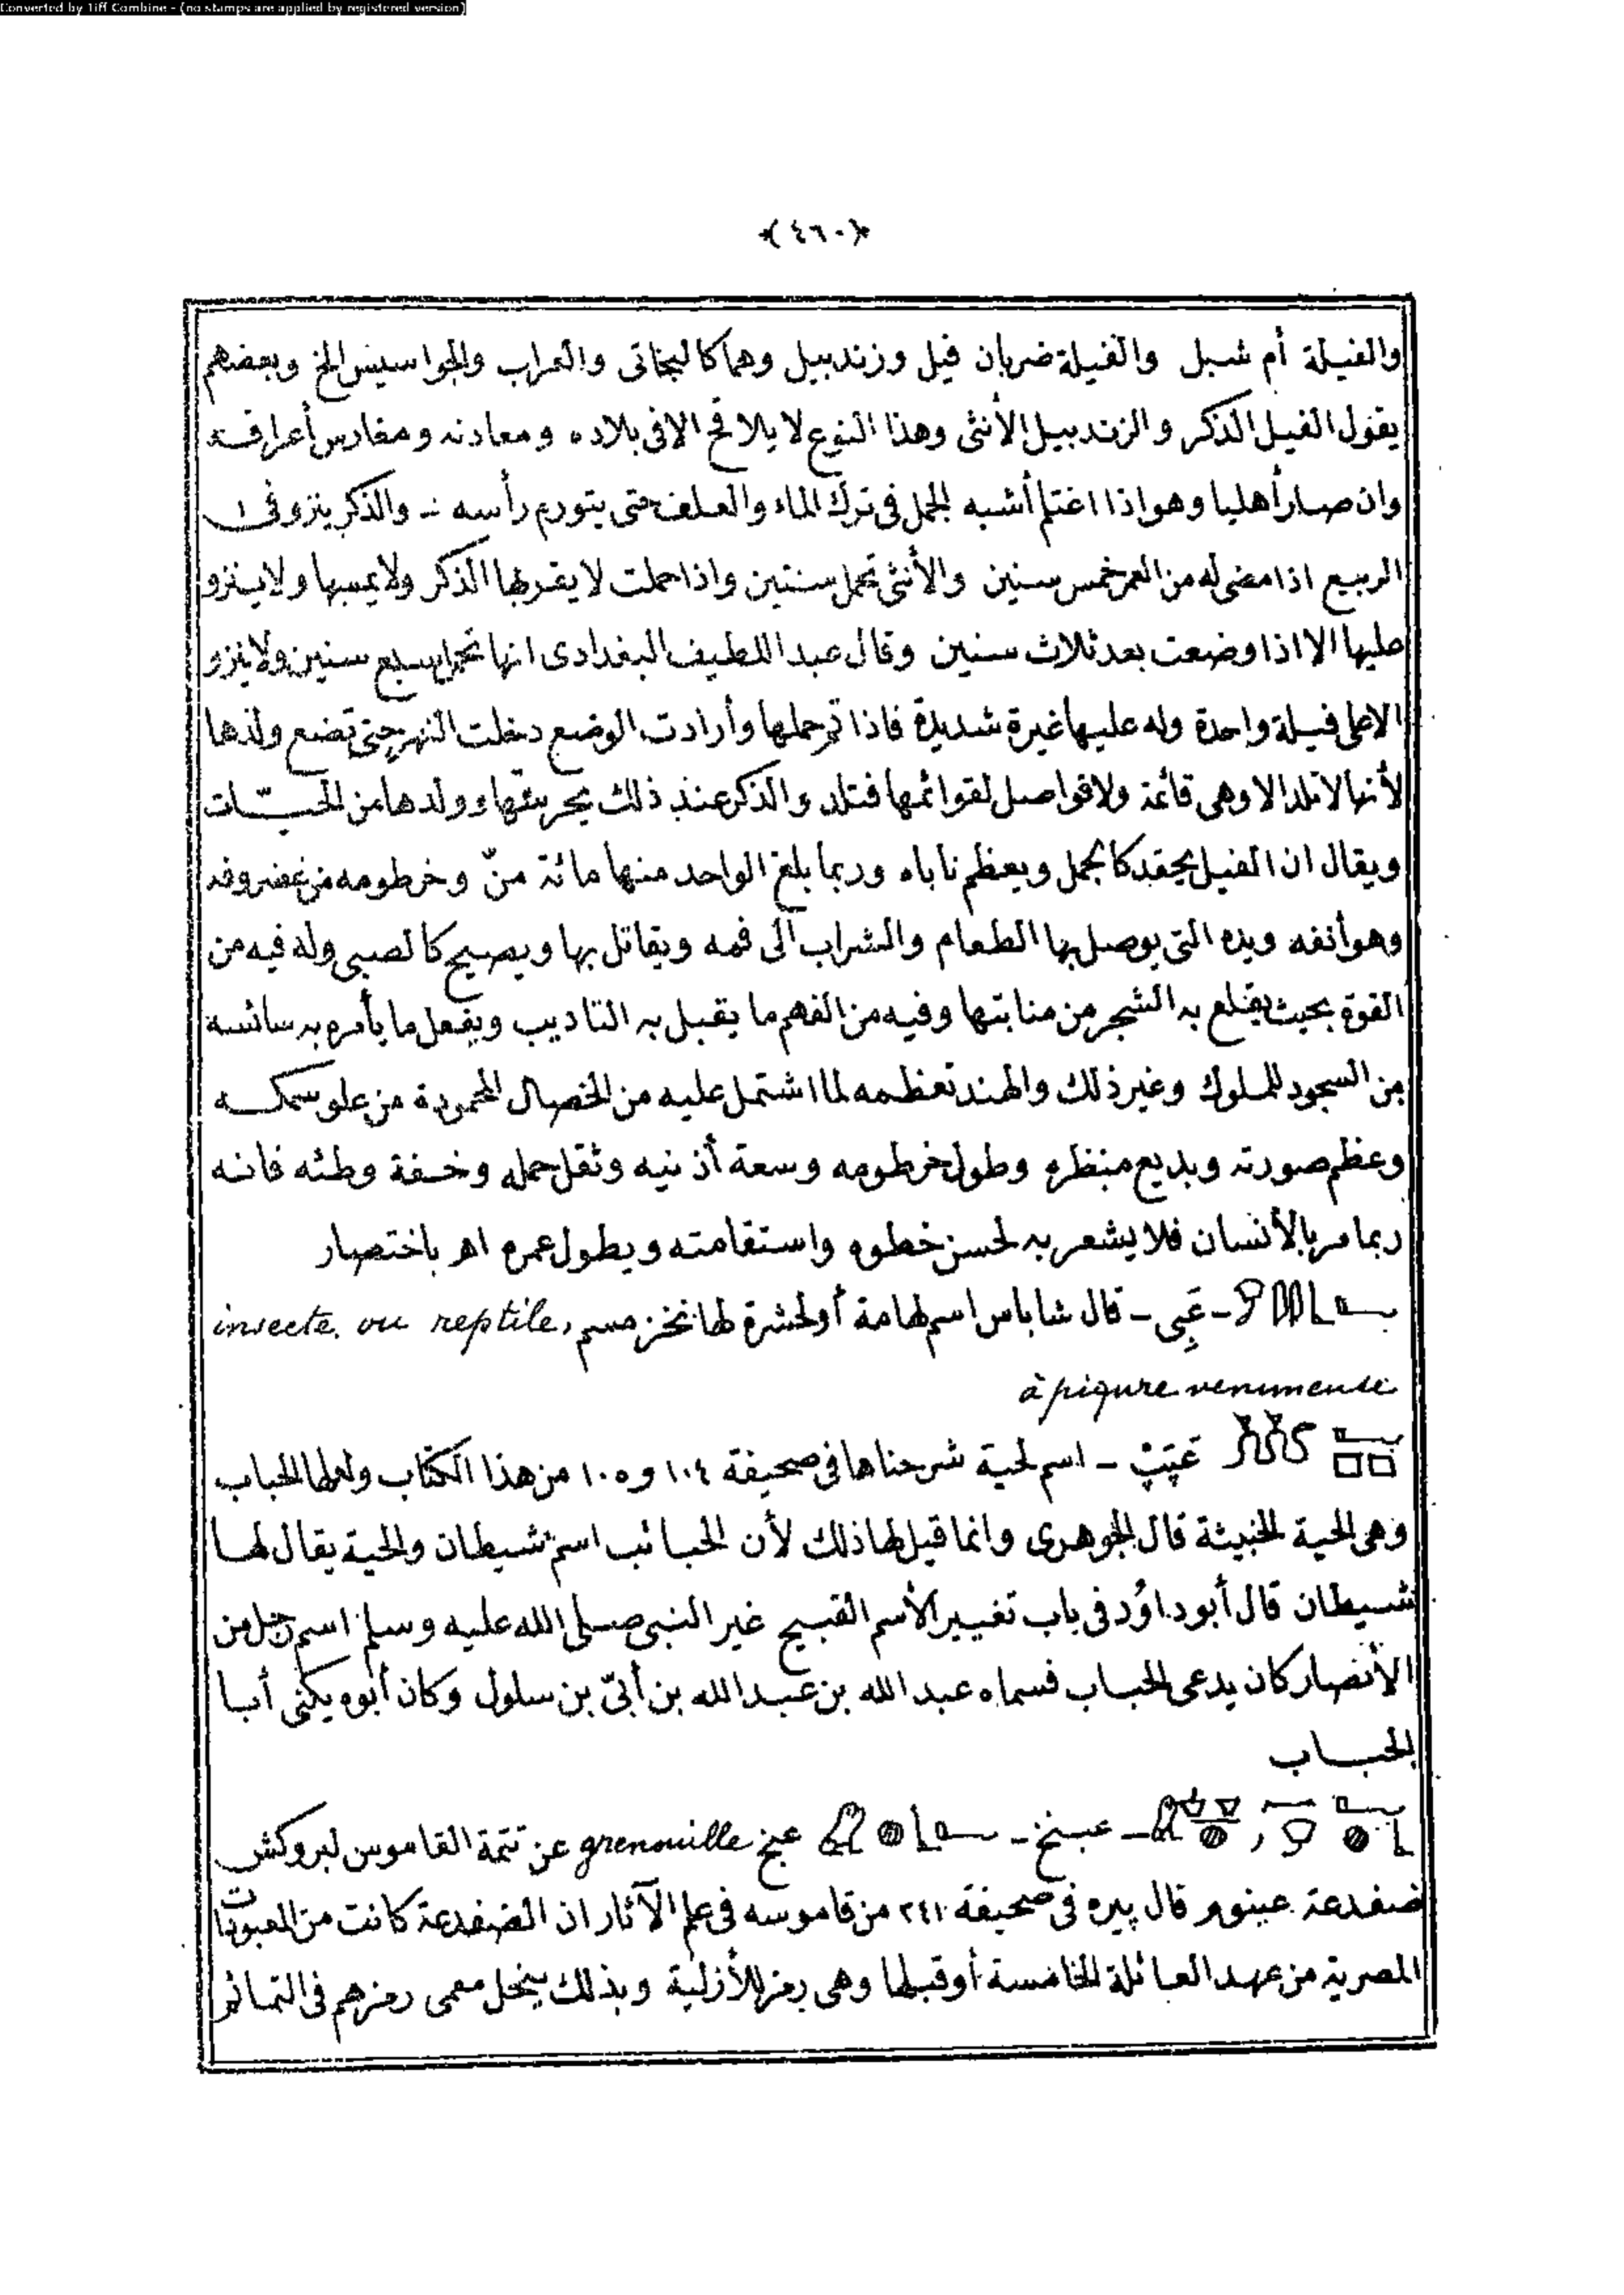 Converted by Tiff Combine - (no stamps are applied by registered version)
﴿٤٦٠﴾
والفيلة أم شبل والفيلة ضربان فيل وزندبيل وهما كالبخاتى والعراب والجواسيس الخ وبعضهم
يقول الفيل الذكر والزندبيل الأنثى وهذا النوع لا يلاقح الا فى بلاده ومعادنه ومغارس أعراقه
وان صار أهليا وهو اذا اغتلم أشبه الجمل فى ترك الماء والعلف حتى يتورم رأسه - والذكر ينزو فى
الربيع اذا مضى له من العمر خمس سنين والأنثى تحمل سنتين واذا حملت لا يقربها الذكر ولا يمسها ولا ينزو
عليها الا اذا وضعت بعد ثلاث سنين وقال عبد اللطيف البغدادى انها تحمل سبع سنين ولا ينزو
الا على فيلة واحدة وله عليها غيرة شديدة فاذا تم حملها وأرادت الوضع دخلت النهر حتى تضع ولدها
لأنها لا تلد الا وهى قائمة ولا فواصل لقوائمها فتلد والذكر عند ذلك يحرسها وولدها من الحيّات
ويقال ان الفيل يحقد كالجمل ويعظم ناباه وربما بلغ الواحد منها مائة منّ وخرطومه من غضروف
وهو أنفه ويده التى يوصل بها الطعام والشراب الى فمه ويقاتل بها ويصيح كالصبى وله فيه من
القوة بحيث يقلع به الشجر من منابتها وفيه من الفهم ما يقبل به التاديب ويفعل ما يأمره به سائسه
من السجود للملوك وغير ذلك والهند تعظمه لما اشتمل عليه من الخصال المحمودة من علو سمكه
وعظم صورته وبديع منظره وطول خرطومه وسعة أذنيه وثقل حمله وخفة وطئه فانه
ربما مر بالأنسان فلا يشعر به لحسن خطوه واستقامته ويطول عمره اهـ باختصار
- عَبِى - قال شاباس اسم لهامة أو لحشرة لها نخز مسم, insecte ou reptile
à piqure venimeuse
عَپَپْ - اسم لحية شرحناها فى صحيفة ١٠٤ و ١٠٥ من هذا الكتاب ولعلها الحباب
وهى الحية الخبيثة قال الجوهرى وانما قيل لها ذلك لأن الحبائب اسم شيطان والحية يقال لها
شيطان قال أبو داؤد فى باب تغيير الأسم القبيح غير النبى صلى الله عليه وسلم اسم رجل من
الأنصار كان يدعى الحباب فسماه عبد الله بن عبد الله بن أبىّ بن سلول وكان أبوه يكنى أبا
الحباب
- عبنخ - عبخ grenouille عن تتمة القاموس لبروكش
ضفدعة قال پيره فى صحيفة ٢٤١ من قاموسه فى علم الآثار ان الضفدعة كانت من المعبودات
المصرية من عهد العائلة الخامسة أو قبلها وهى رمز للأزلية وبذلك ينحل معمى رمزهم فى التماثيل